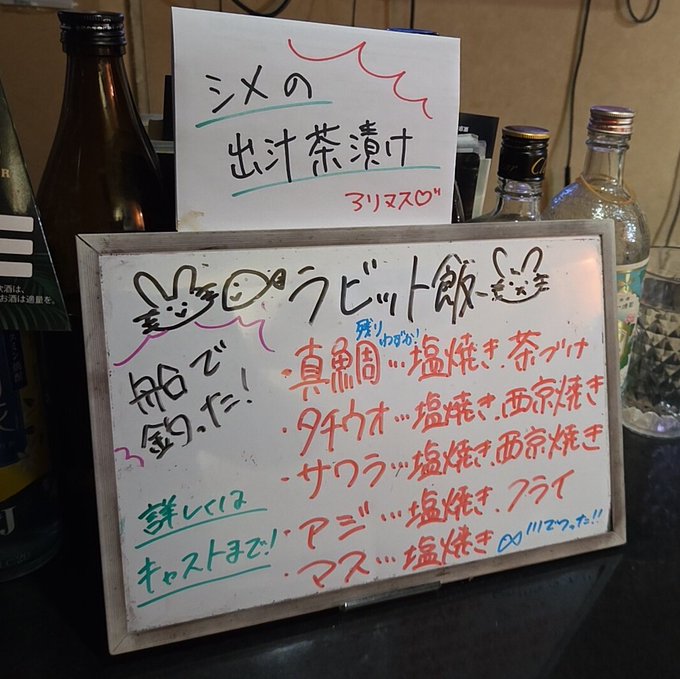 シメの
出汁茶漬け
アリマス♡
ラビット飯
船で
釣った!
残りわずか!
・真鯛…塩焼き、茶づけ
・タチウオ…塩焼き、西京焼き
・サワラ…塩焼き、西京焼き
・アジ…塩焼き、フライ
・マス…塩焼き
でつった!!
詳しくは
キャストまで!
お酒は適量を。